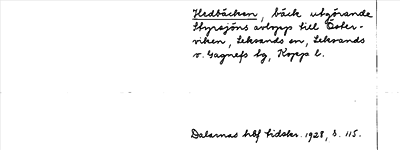 Hedbäcken, bäck utgörande
Styrsjöns avlopp till Öster-
viken, Leksands sn, Leksands
o. Gagnefs tg, Kopp l.
Dalarnas hbf tidskr. 1928, s. 115.